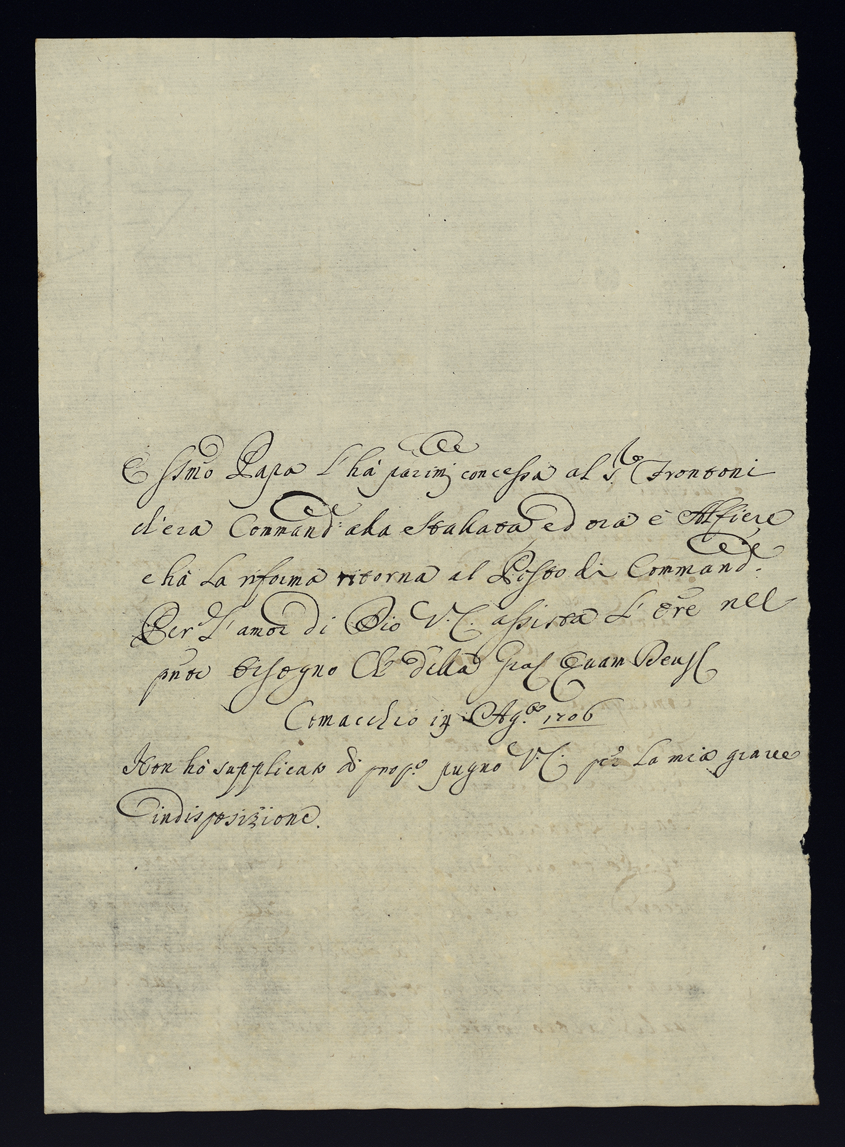 E ssmo Papa l'ha parimj concessa al Sr Frontoni
ch'era Command:te alla Stallata ed ora è Alfiere
e hà La riforma ritorna al Posto di Command:te
Per L'amor di Dio V.C. assista L'Ore nel
pnte bisogno Che della graz Quam Deus
Comacchio 14 Ag.to 1706
Non hò supplicato di prop.o pugno V.C. per La mia graue
indisposizione.